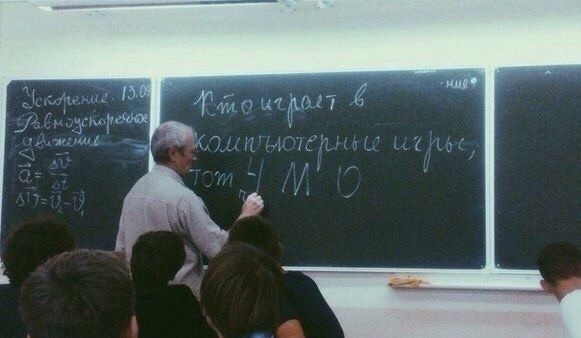 Ускорение. 13.09
Равноускоренное
движение
a = ΔV / Δt
ΔV = V₂ - V₁
Кто играет в
компьютерные игры,
тот ЧМО
ние?